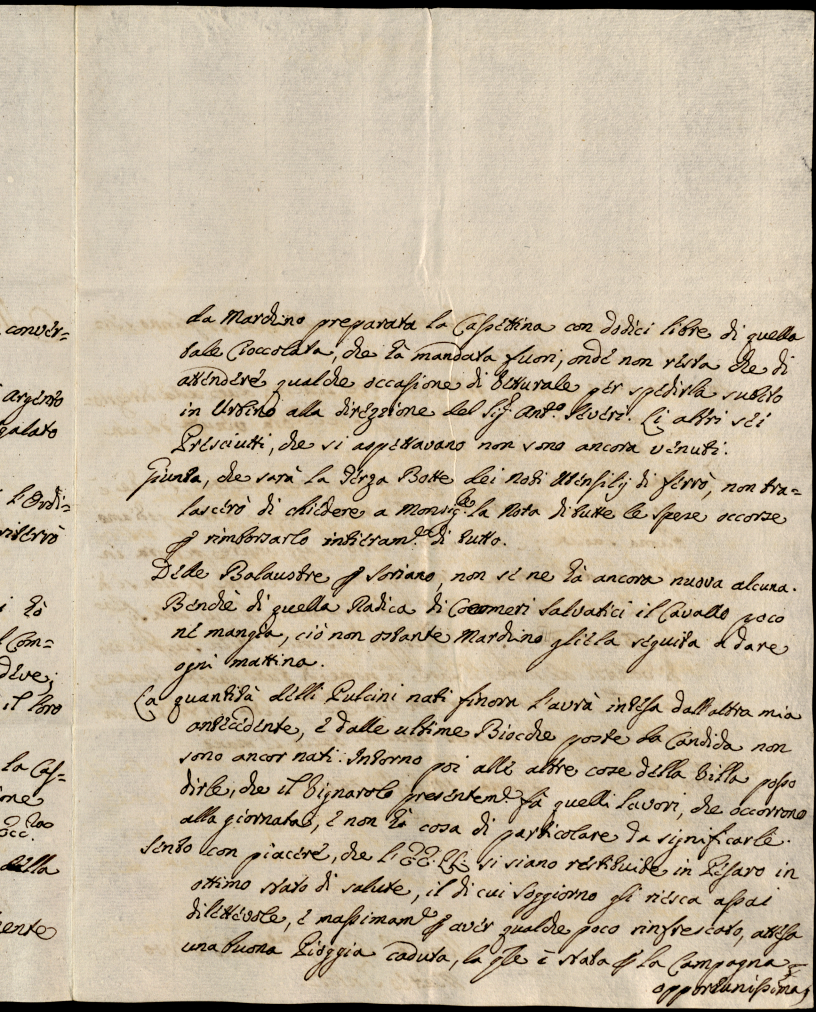 conver=
Argento
galato
l'Ordi=
riceverò
hò
Com=
deve;
il loro
la Cas=
ione
della
mente
da Marchino preparata la Cassettina con dodici libre di quella
tale Cioccolata, che hà mandata fuori; onde non resta che di
attendere qualche occasione di Vetturale per spedirla subito
in Urbino alla direzzione del Sig.r Ant.o Severi. Li altri sei
Presciutti, che si aspettavano non sono ancora venuti.
Giunta, che sarà la Terza Botte dei noti Utensilij di ferro, non tra=
lascerò di chiedere a Monsig.r la Nota di tutte le spese occorse
p rimborsarlo intieram.te di tutto.
Delle Balaustre p Soriano, non se ne hà ancora nuova alcuna.
Benche di quella Radica di Cocomeri Salvatici il Cavallo poco
ne mangia, ciò non ostante Marchino gliela seguita a dare
ogni mattina.
La quantità delli Pulcini nati finora l'avrà intesa dall'altra mia
antecedente, e dalle ultime Biocche poste da Candida non
sono ancor nati. Intorno poi alle altre cose della Villa posso
dirle, che il Vignarolo presentem.te fà quelli lavori, che occorrono
alla giornata, e non hà cosa di particolare da significarle.
Sento con piacere, che l'EE. LL. si siano restituite in Pesaro in
ottimo stato di salute, il di cui soggiorno gli riesca assai
dilettevole, e massimam.te p aver qualche poco rinfrescato, attesa
una buona Pioggia caduta, la qle è stata p la Campagna
opportunissima,